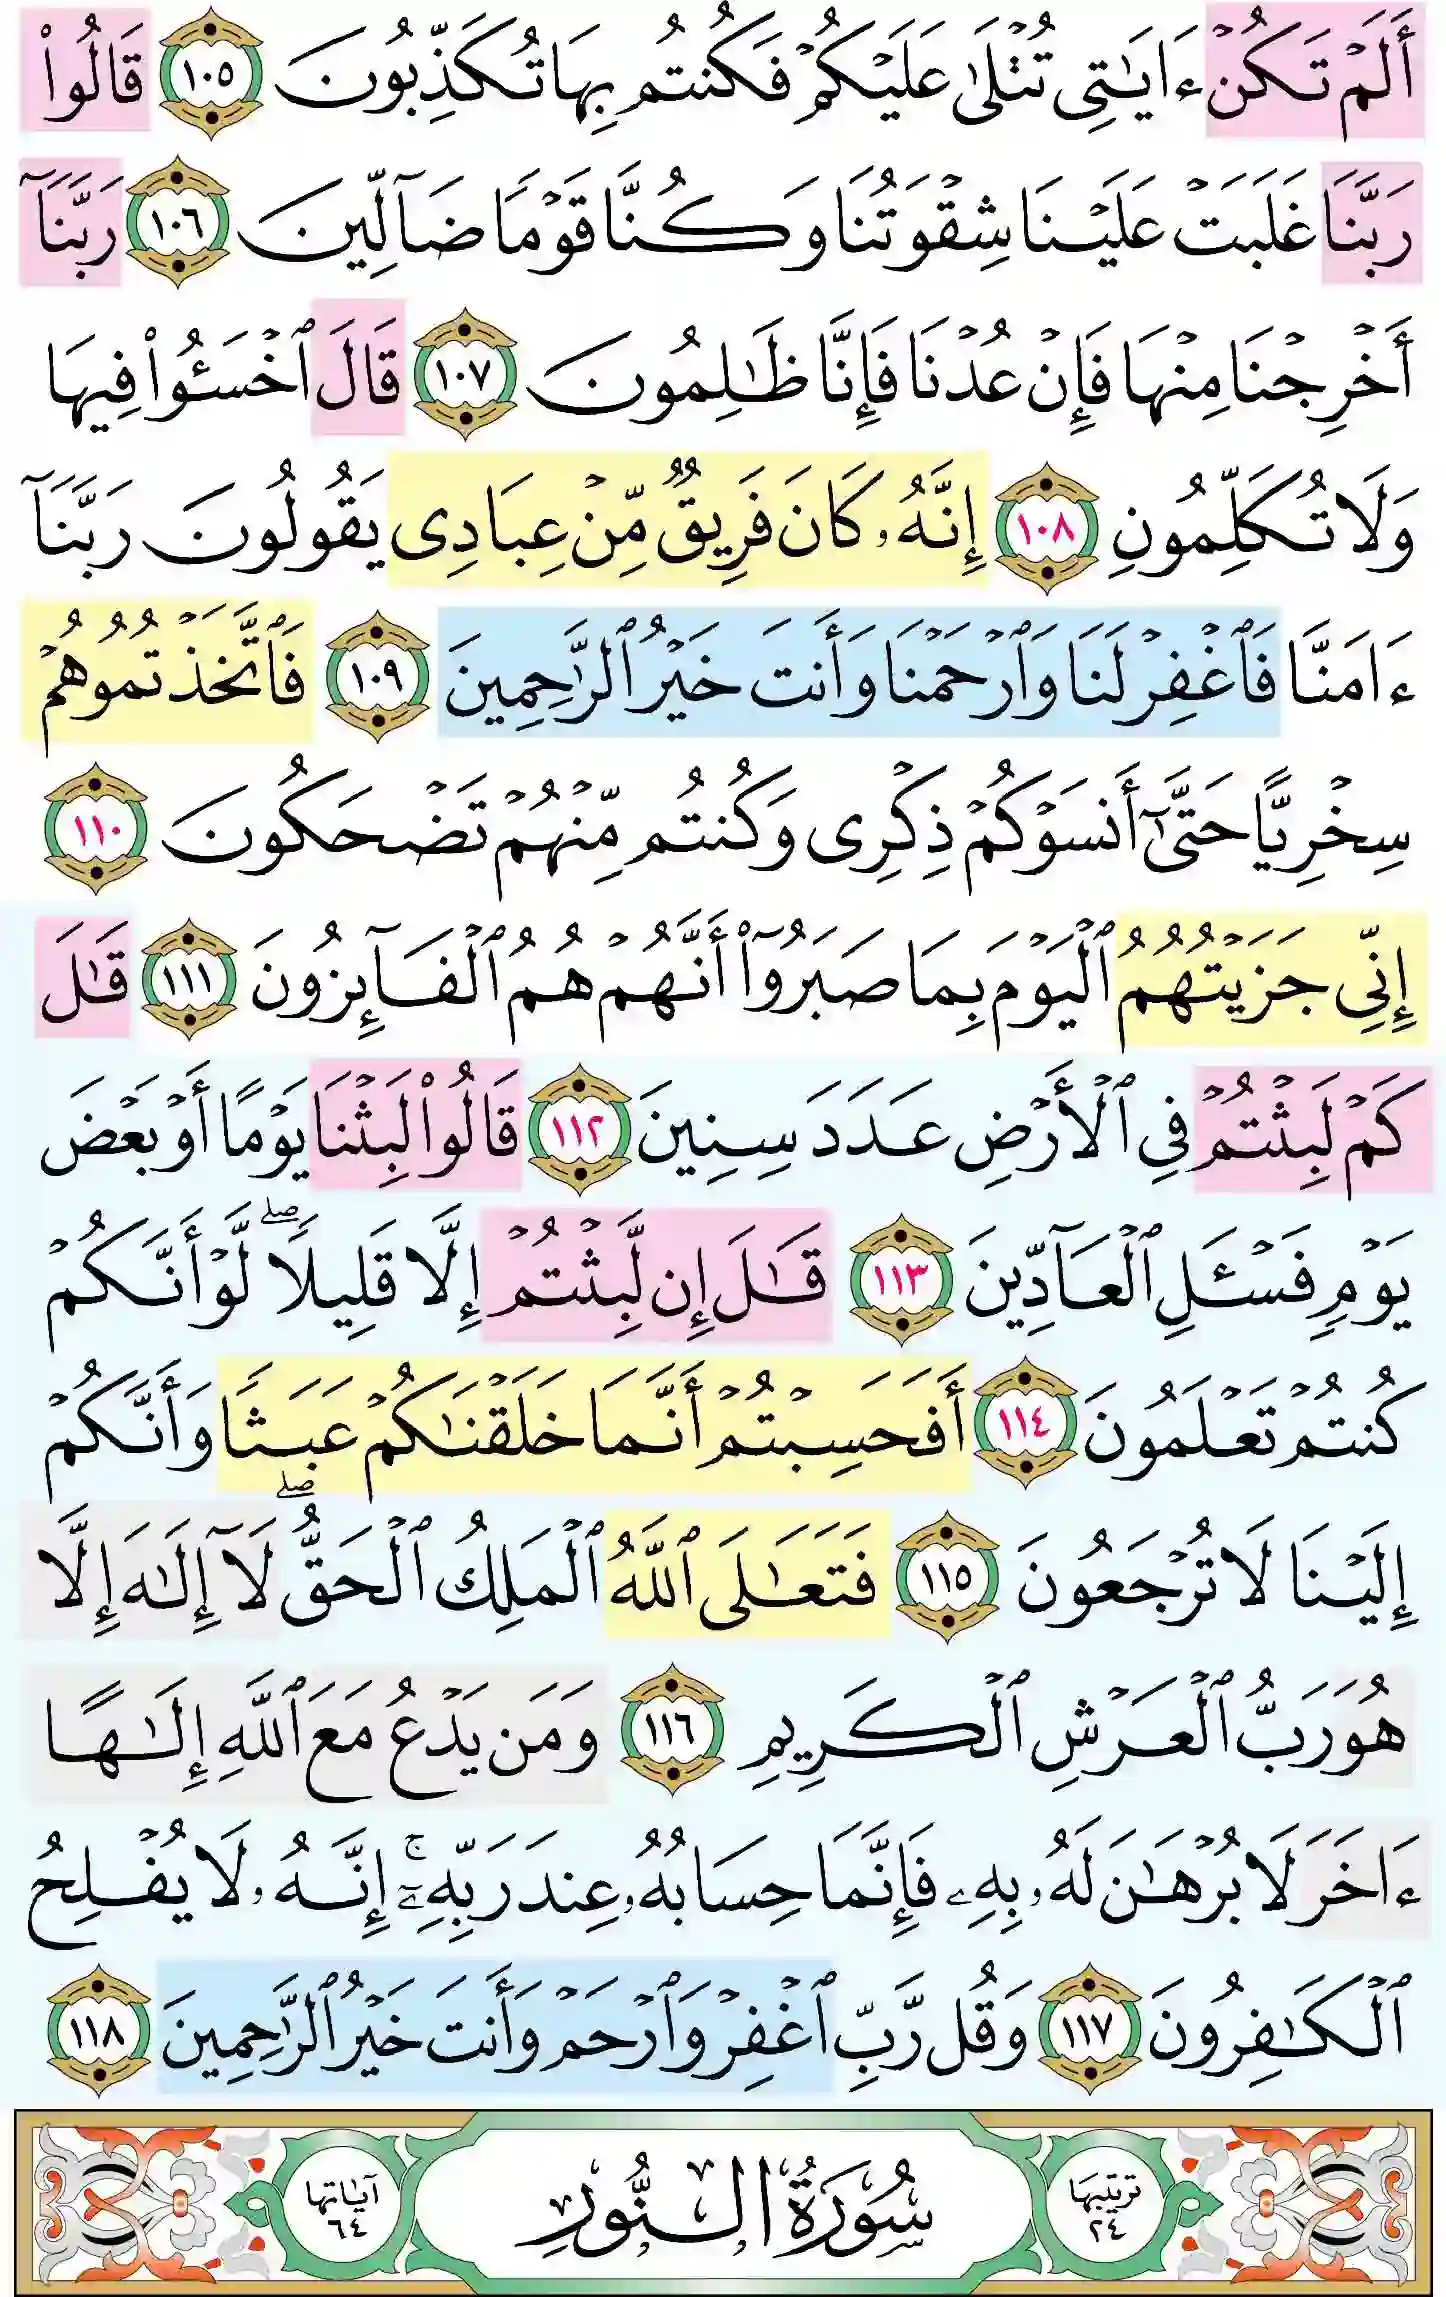 أَلَمۡ تَكُنۡ ءَايَٰتِي تُتۡلَىٰ عَلَيۡكُمۡ فَكُنتُم بِهَا تُكَذِّبُونَ ١٠٥ قَالُواْ
رَبَّنَا غَلَبَتۡ عَلَيۡنَا شِقۡوَتُنَا وَكُنَّا قَوۡمٗا ضَآلِّينَ ١٠٦ رَبَّنَآ
أَخۡرِجۡنَا مِنۡهَا فَإِنۡ عُدۡنَا فَإِنَّا ظَٰلِمُونَ ١٠٧ قَالَ ٱخۡسَـُٔواْ فِيهَا
وَلَا تُكَلِّمُونِ ١٠٨ إِنَّهُۥ كَانَ فَرِيقٞ مِّنۡ عِبَادِي يَقُولُونَ رَبَّنَآ
ءَامَنَّا فَٱغۡفِرۡ لَنَا وَٱرۡحَمۡنَا وَأَنتَ خَيۡرُ ٱلرَّٰحِمِينَ ١٠٩ فَٱتَّخَذۡتُمُوهُمۡ
سِخۡرِيًّا حَتَّىٰٓ أَنسَوۡكُمۡ ذِكۡرِي وَكُنتُم مِّنۡهُمۡ تَضۡحَكُونَ ١١٠
إِنِّي جَزَيۡتُهُمُ ٱلۡيَوۡمَ بِمَا صَبَرُوٓاْ أَنَّهُمۡ هُمُ ٱلۡفَآئِزُونَ ١١١ قَٰلَ
كَمۡ لَبِثۡتُمۡ فِي ٱلۡأَرۡضِ عَدَدَ سِنِينَ ١١٢ قَالُواْ لَبِثۡنَا يَوۡمًا أَوۡ بَعۡضَ
يَوۡمٖ فَسۡـَٔلِ ٱلۡعَآدِّينَ ١١٣ قَٰلَ إِن لَّبِثۡتُمۡ إِلَّا قَلِيلٗاۖ لَّوۡ أَنَّكُمۡ
كُنتُمۡ تَعۡلَمُونَ ١١٤ أَفَحَسِبۡتُمۡ أَنَّمَا خَلَقۡنَٰكُمۡ عَبَثٗا وَأَنَّكُمۡ
إِلَيۡنَا لَا تُرۡجَعُونَ ١١٥ فَتَعَٰلَى ٱللَّهُ ٱلۡمَلِكُ ٱلۡحَقُّۖ لَآ إِلَٰهَ إِلَّا
هُوَ رَبُّ ٱلۡعَرۡشِ ٱلۡكَرِيمِ ١١٦ وَمَن يَدۡعُ مَعَ ٱللَّهِ إِلَٰهًا
ءَاخَرَ لَا بُرۡهَٰنَ لَهُۥ بِهِۦ فَإِنَّمَا حِسَابُهُۥ عِندَ رَبِّهِۦٓۚ إِنَّهُۥ لَا يُفۡلِحُ
ٱلۡكَٰفِرُونَ ١١٧ وَقُل رَّبِّ ٱغۡفِرۡ وَٱرۡحَمۡ وَأَنتَ خَيۡرُ ٱلرَّٰحِمِينَ ١١٨
ترتيبها ٢٤
سُورَةُ النُّورِ
آياتها ٦٤